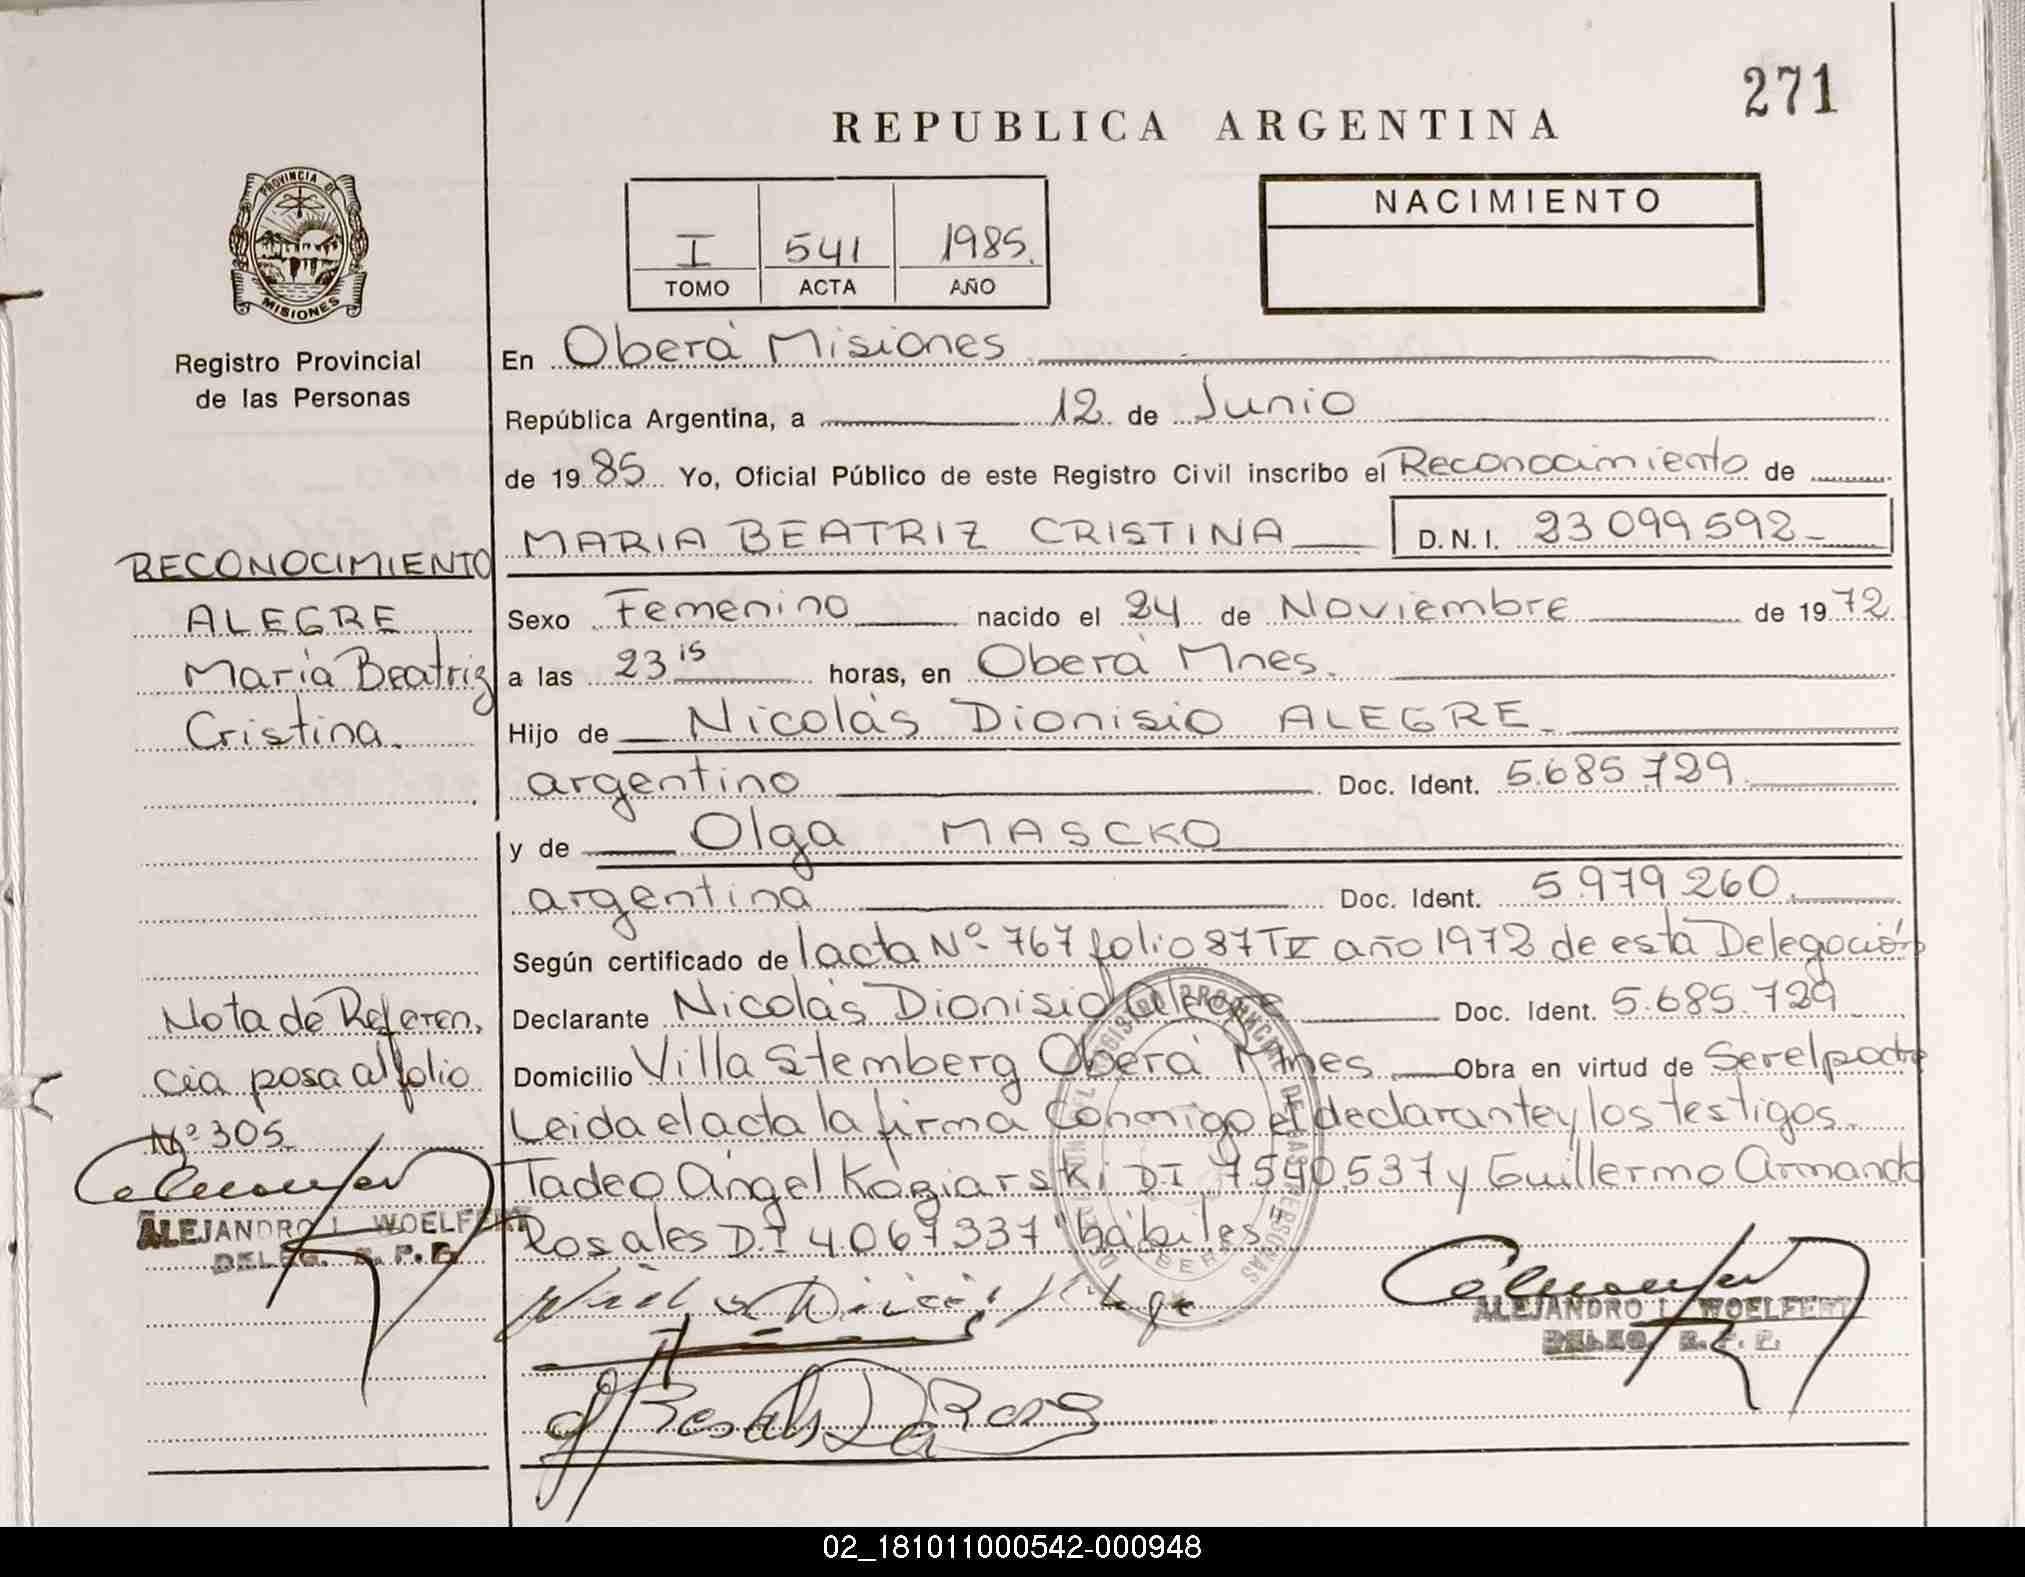 271
REPUBLICA ARGENTINA
PROVINCIA DE
MISIONES
I 541 1985.
TOMO ACTA AÑO
NACIMIENTO
Registro Provincial
de las Personas
En Oberá Misiones
República Argentina, a 12 de Junio
de 1985 Yo, Oficial Público de este Registro Civil inscribo el Reconocimiento de
MARIA BEATRIZ CRISTINA D.N.I. 23099592
RECONOCIMIENTO
ALEGRE
María Beatriz
Cristina.
Sexo Femenino nacido el 24 de Noviembre de 1972
a las 23 15 horas, en Oberá Mnes.
Hijo de Nicolás Dionisio ALEGRE
argentino Doc. Ident. 5.685.729.
y de Olga MASCKO
argentina Doc. Ident. 5.979.260.
Según certificado de lacta Nº 767 folio 87 T IV año 1972 de esta Delegación
Declarante Nicolás Dionisio Alegre Doc. Ident. 5.685.729
Domicilio Villa Stemberg Oberá Mnes Obra en virtud de Ser el padre
Leida el acta la firma Conmigo el declarante y los testigos.
Tadeo Angel Koziarski DI 7540.537 y Guillermo Armando
Rosales D.I 4067337 "hábiles
Nota de Referen,
cia posa al folio
Nº 305
ALEJANDRO L. WOELFERT
DELEG. R. P. P.
ALEJANDRO L. WOELFERT
DELEG. R. P. P.
02_181011000542-000948